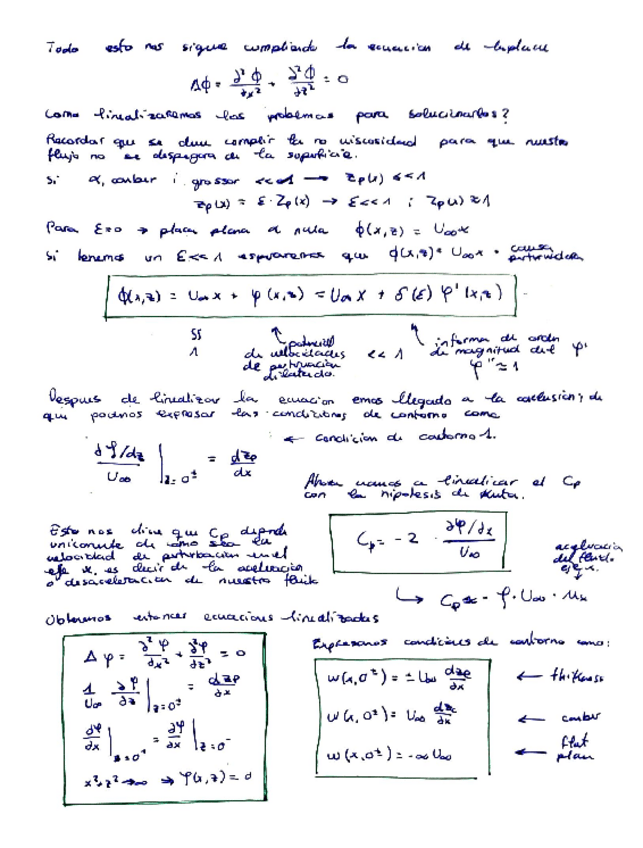 Todo esto nos sigue cumpliendo la ecuacion de laplace
Δϕ = ∂²ϕ/∂x² + ∂²ϕ/∂z² = 0
Como linealizaremos los problemas para solucionarlos?
Recordar que se debe complir la no viscosidad para que nuestro
flujo no se despegara de la superficie.
Si α, camber i grossor <<1 → Zp(x) <<1
Zp(x) = ε·Zp(x) → ε<<1 ; Zp(x) ≈ 1
Para ε=0 → placa plana α nula ϕ(x,z) = U∞x
Si tenemos un ε<<1 esperaremos que ϕ(x,z) = U∞x + causa perturbadora
ϕ(x,z) = U∞ x + φ(x,z) = U∞ x + δ(ε) φ'(x,z)
SS
1
potencial
de velocidades
de perturbacion
dilatado.
<< 1
informa de orden
de magnitud del φ'
φ' ≈ 1
Despues de linealizar la ecuacion emos llegado a la conclusion; de
que podemos expresar las condiciones de contorno como
← condicion de contorno 1.
∂φ/∂z / U∞ |z=0± = dzp/dx
Ahora vamos a linealizar el Cp
con la hipotesis de Kutta.
Cp = -2 · ∂φ/∂x / U∞
Esto nos dice que Cp depende
unicamente de como sea la
velocidad de perturbacion en el
eje x, es decir de la aceleracion
o desaceleracion de nuestro fluido
aceleracion
del fluido
eje x.
↳ Cp ∝ - ρ · U∞ · ux
Obtenemos entonces ecuaciones linealizadas
Δφ = ∂²φ/∂x² + ∂²φ/∂z² = 0
1/U∞ ∂φ/∂z |z=0± = dzp/dx
∂φ/∂x |z=0⁺ = ∂φ/∂x |z=0⁻
x²+z² → ∞ → φ(x,z) = 0
Expresamos condiciones de contorno como:
w(x,0±) = ± U∞ dzp/dx ← thikness
w(x,0±) = U∞ dzc/dx ← camber
w(x,0±) = -∞ U∞ ← flat plan